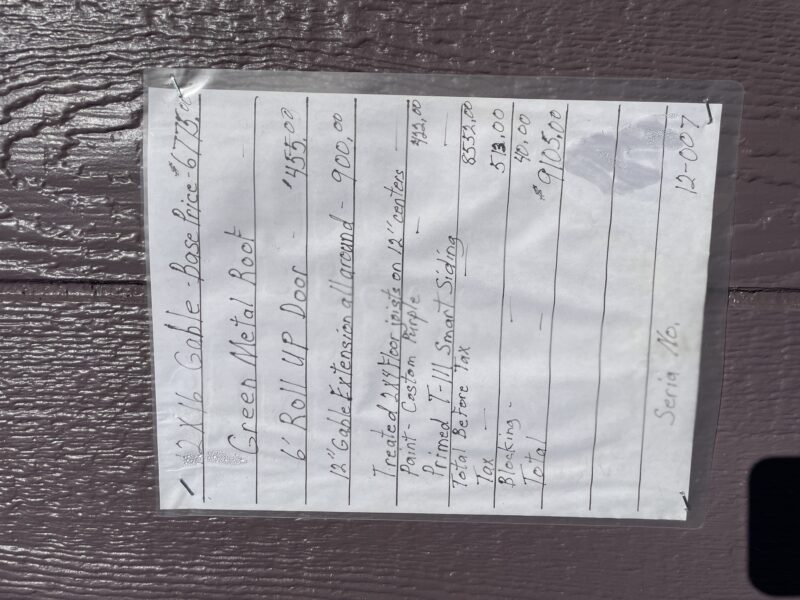 12 X 16 Gable - Base Price - $6,775.00
Green Metal Roof -
6' Roll UP Door - $455.00
12" Gable Extension all around - 900.00
Treated 2X4 Floor joists on 12" centers
Paint - Custom Purple - 422.00
Primed T-111 Smart Siding -
Total Before Tax - 8552.00
Tax - 513.00
Blocking - - 40.00
Total - $9105.00
Seria No. 12-007